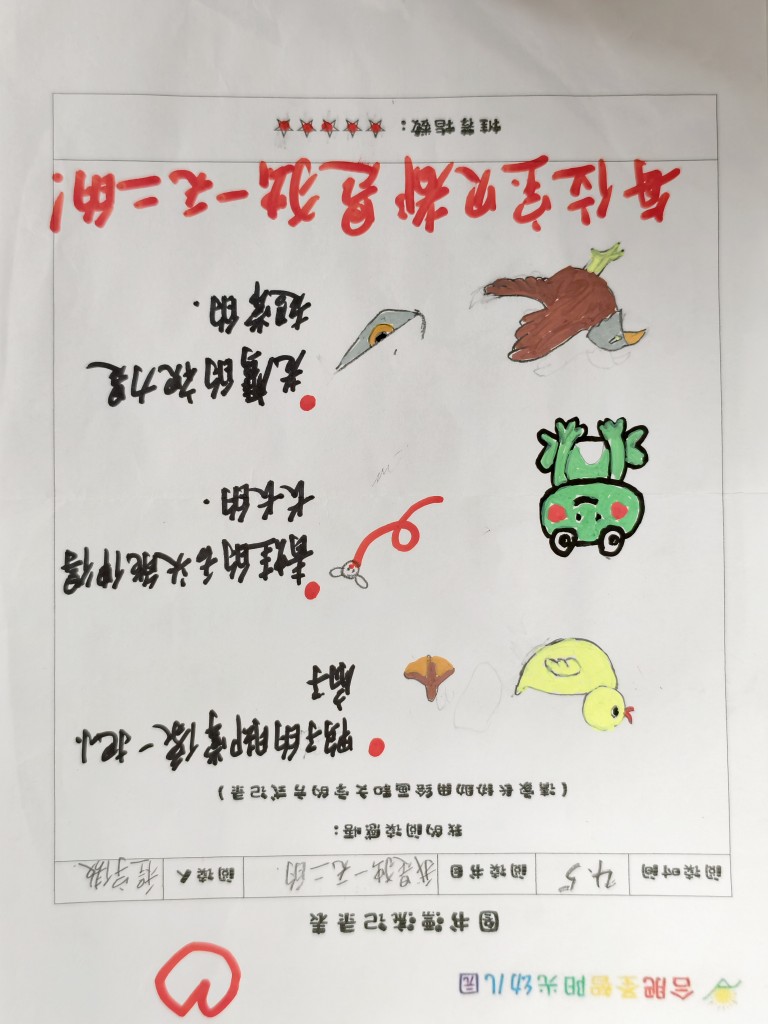 合肥圣智阳光幼儿园
图书漂流记录表
阅读时间 4.5 阅读书目 我是独一无二的. 阅读人
我的阅读感悟:
(请家长协助用绘画和文字的方式记录)
鸭子的脚掌像一把小
扇子
青蛙的舌头能伸得
长长的.
老鹰的视力是
超常的.
每位宝贝都是独一无二的!
推荐指数: ★★★★★